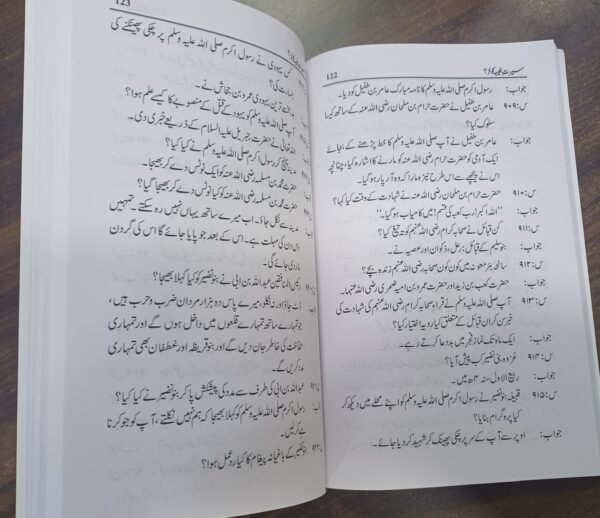 122
سیرت طیبہ کوئز؟
جواب: رسول اکرم صلی اللہ علیہ وسلم کا نامہ مبارک عامر بن طفیل کو دیا۔
س:۹۰۹ عامر بن طفیل نے حضرت حرام بن ملحان رضی اللہ عنہ کے ساتھ کیا
سلوک کیا؟
جواب: عامر بن طفیل نے آپ صلی اللہ علیہ وسلم کا خط پڑھنے کے بجائے
ایک آدمی کو حضرت حرام رضی اللہ عنہ کو مارنے کا اشارہ کیا، چنانچہ
اس نے پیچھے سے اس طرح نیزہ مارا کہ وہ آر پار ہو گیا۔
س:۹۱۰ حضرت حرام بن ملحان رضی اللہ عنہ نے شہادت کے وقت کیا کہا؟
جواب: ’’اللہ اکبر! رب کعبہ کی قسم! میں کامیاب ہو گیا۔‘‘
س:۹۱۱ کن قبائل نے صحابہ کرام رضی اللہ عنہم کو تہ تیغ کیا؟
جواب: بنو سلیم کے قبائل: رعل، ذکوان اور عصیہ نے۔
س:۹۱۲ سانحہ بئر معونہ میں کون کون صحابہ رضی اللہ عنہم زندہ بچے؟
جواب: حضرت کعب بن زید اور حضرت عمرو بن امیہ ضمری رضی اللہ عنہما۔
س:۹۱۳ آپ صلی اللہ علیہ وسلم نے قراء صحابہ کرام رضی اللہ عنہم کی شہادت کی
خبر سن کر ان قبائل کے متعلق کیا رویہ اختیار کیا؟
جواب: ایک ماہ تک نماز فجر میں بددعا کرتے رہے۔
س:۹۱۴ غزوہ بنی نضیر کب پیش آیا؟
جواب: ربیع الاول سنہ ۴ھ میں۔
س:۹۱۵ قبیلہ بنو نضیر نے رسول اکرم صلی اللہ علیہ وسلم کو اپنے محلے میں دیکھ کر
کیا پروگرام بنایا؟
جواب: اوپر سے آپ کے سر پر چکی پھینک کر شہید کر دیا جائے۔
123
کس یہودی نے رسول اکرم صلی اللہ علیہ وسلم پر چکی پھینکنے کی
جسارت کی؟
بدبخت ترین یہودی عمرو بن جحاش نے۔
آپ صلی اللہ علیہ وسلم کو یہود کے قتل کے منصوبے کا کیسے علم ہوا؟
اللہ تعالیٰ نے حضرت جبریل علیہ السلام کے ذریعے خبر دی۔
مدینہ پہنچ کر رسول اکرم صلی اللہ علیہ وسلم نے کیا کیا؟
حضرت محمد بن مسلمہ رضی اللہ عنہ کو ایک نوٹس دے کر بھیجا۔
حضرت محمد بن مسلمہ رضی اللہ عنہ کو کیا نوٹس دے کر بھیجا گیا؟
مدینے سے نکل جاؤ۔ اب میرے ساتھ یہاں نہیں رہ سکتے۔ تمہیں
دس دن کی مہلت ہے۔ اس کے بعد جو پایا جائے گا اس کی گردن
مار دی جائے گی۔
رئیس المنافقین عبداللہ بن ابی نے بنو نضیر کو کیا کہلا بھیجا؟
ڈٹ جاؤ اور نہ نکلو، میرے پاس دو ہزار مردان ضرب و حرب ہیں،
جو تمہارے ساتھ تمہارے قلعوں میں داخل ہوں گے اور تمہاری
حفاظت کی خاطر جان دیں گے اور بنو قریظہ اور غطفان بھی تمہاری
مدد کریں گے۔
عبداللہ بن ابی کی طرف سے مدد کی پیشکش پا کر بنو نضیر نے کیا کیا؟
رسول اکرم صلی اللہ علیہ وسلم کو کہلا بھیجا کہ ہم نہیں نکلتے، آپ کو جو کرنا
ہے کر لیں۔
بنو نضیر کے باغیانہ پیغام کا کیا رد عمل ہوا؟